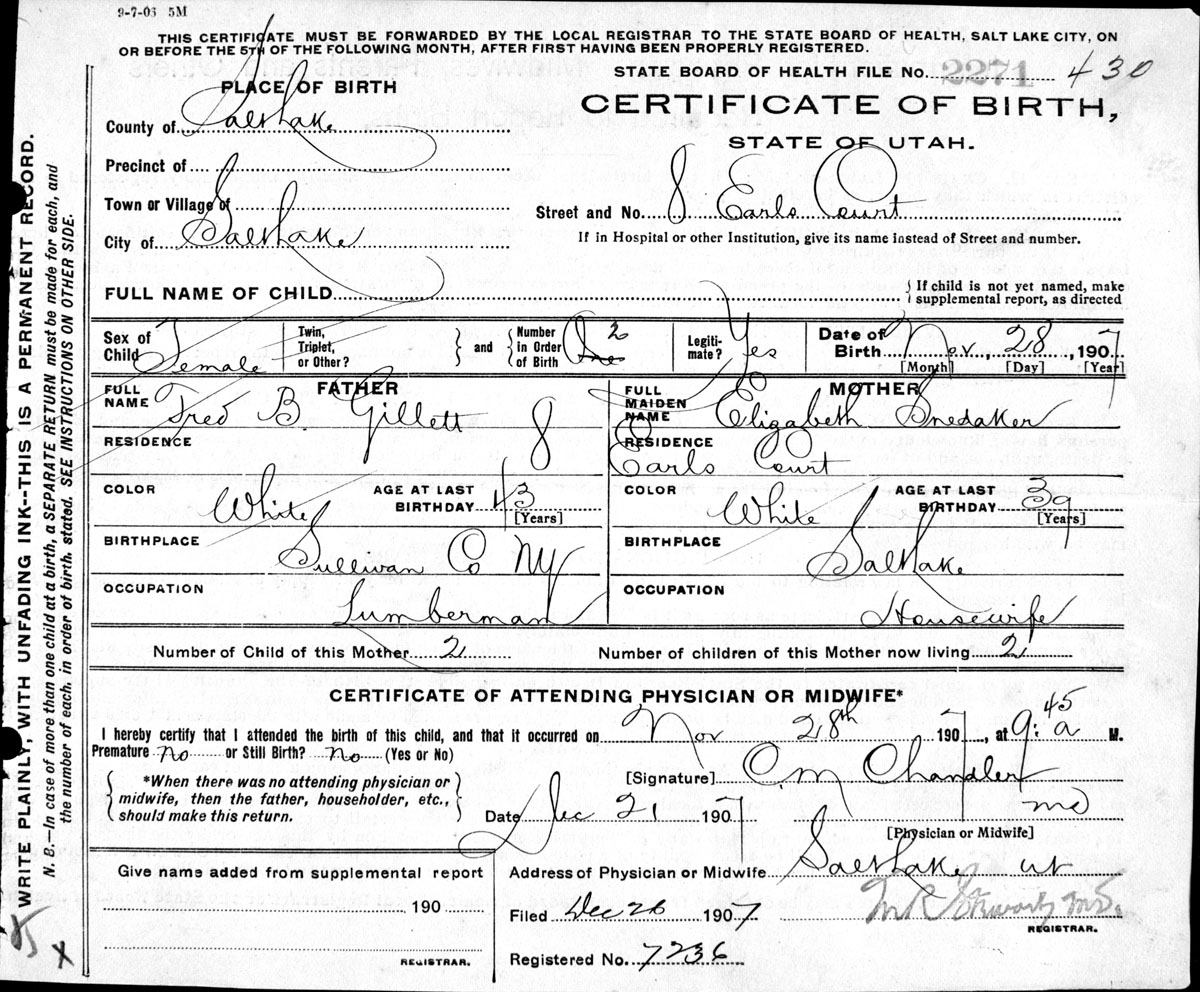 9-7-06 5M
THIS CERTIFICATE MUST BE FORWARDED BY THE LOCAL REGISTRAR TO THE STATE BOARD OF HEALTH, SALT LAKE CITY, ON
OR BEFORE THE 5TH OF THE FOLLOWING MONTH, AFTER FIRST HAVING BEEN PROPERLY REGISTERED.
STATE BOARD OF HEALTH FILE No. 2271 430
PLACE OF BIRTH
CERTIFICATE OF BIRTH,
STATE OF UTAH.
County of Salt Lake
Precinct of
Town or Village of
City of Salt Lake
Street and No. 8 Earls Court
If in Hospital or other Institution, give its name instead of Street and number.
FULL NAME OF CHILD
If child is not yet named, make
supplemental report, as directed
Sex of Child Female
Twin, Triplet, or Other?
and
Number in Order of Birth One 2
Legiti-mate? Yes
Date of Birth Nov, 28, 1907
[Month] [Day] [Year]
FATHER
FULL NAME Fred B. Gillett
RESIDENCE 8
COLOR White
AGE AT LAST BIRTHDAY 43
[Years]
BIRTHPLACE Sullivan Co NY
OCCUPATION Lumberman
MOTHER
FULL MAIDEN NAME Elizabeth Snedaker
RESIDENCE Earls Court
COLOR White
AGE AT LAST BIRTHDAY 39
[Years]
BIRTHPLACE Salt Lake
OCCUPATION Housewife
Number of Child of this Mother 2
Number of children of this Mother now living 2
CERTIFICATE OF ATTENDING PHYSICIAN OR MIDWIFE*
I hereby certify that I attended the birth of this child, and that it occurred on Nov 28th 1907, at 9:45 a M.
Premature no or Still Birth? no (Yes or No)
*When there was no attending physician or
midwife, then the father, householder, etc.,
should make this return.
[Signature] O. M. Chandler
md
Date Dec 21 1907
[Physician or Midwife]
Give name added from supplemental report
190
REGISTRAR.
Address of Physician or Midwife Salt Lake ut
Filed Dec 26 1907
REGISTRAR.
Registered No. 7236
WRITE PLAINLY, WITH UNFADING INK--THIS IS A PERMANENT RECORD.
N. B.—In case of more than one child at a birth, a SEPARATE RETURN must be made for each, and
the number of each, in order of birth, stated. SEE INSTRUCTIONS ON OTHER SIDE.
X